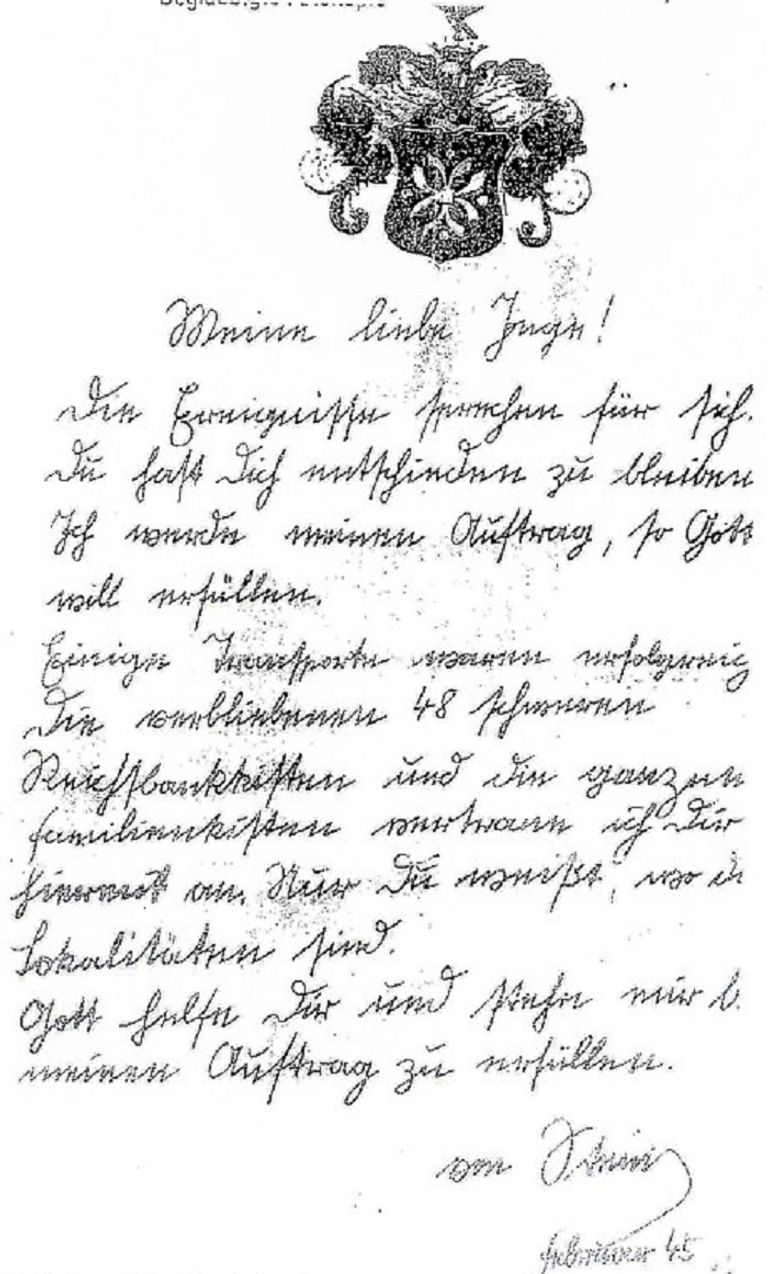 Meine liebe Inge!
Die Ereignisse sprechen für sich.
Du hast Dich entschieden zu bleiben
Ich werde meinen Auftrag, so Gott
will erfüllen.
Einige Transporte waren erfolgreich
Die verbliebenen 48 schweren
Reichsbankkisten und die ganzen
Familienkisten vertraue ich Dir
hiermit an. Nur Du weißt, wo di
Lokalitäten sind.
Gott helfe Dir und stehe mir b.
meinen Auftrag zu erfüllen.
von Stein
Februar 45